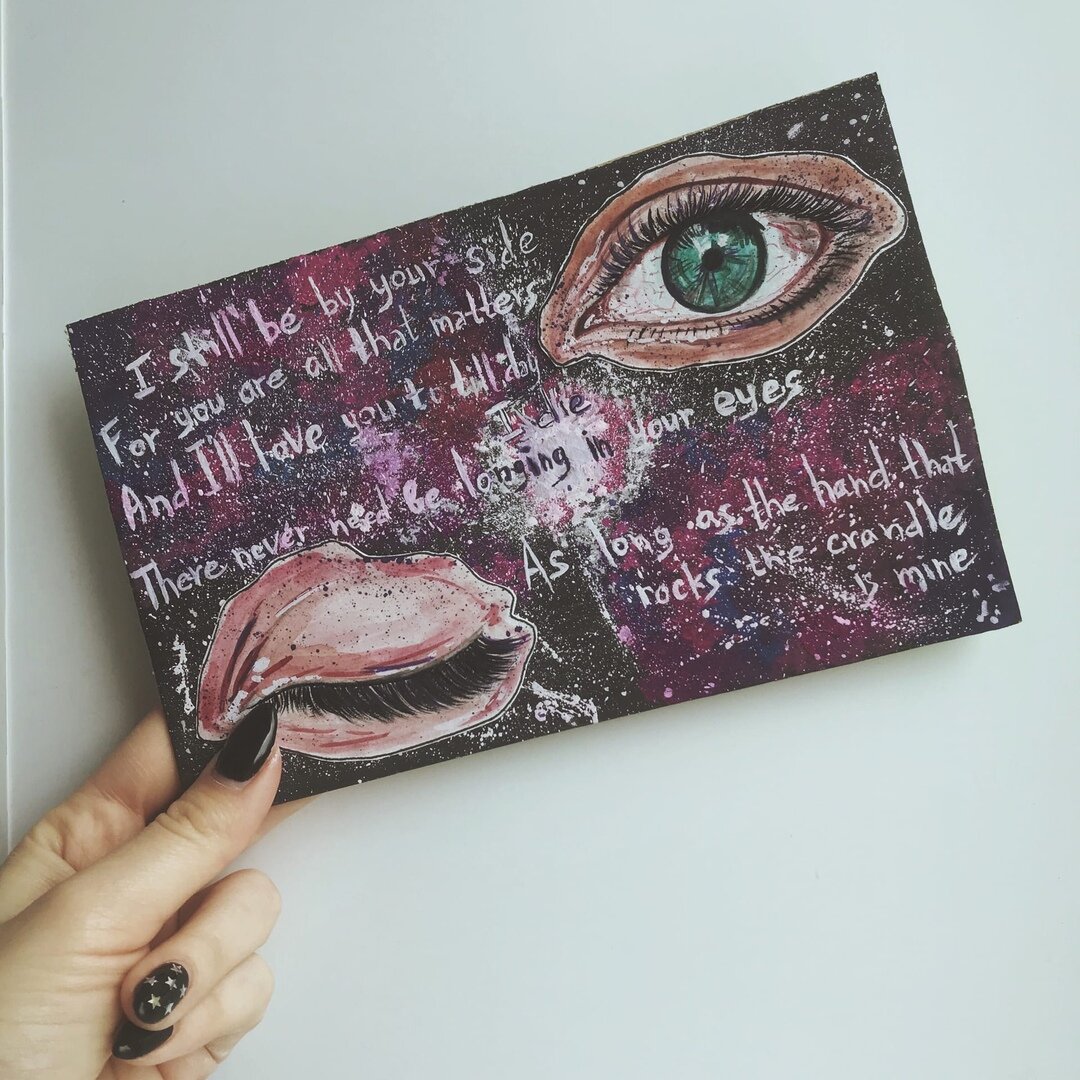 I still be by your side
For you are all that matters
And I'll love you to till dby
I die
There never need be longing in your eyes
As long as the hand that
rocks the crandle
is mine